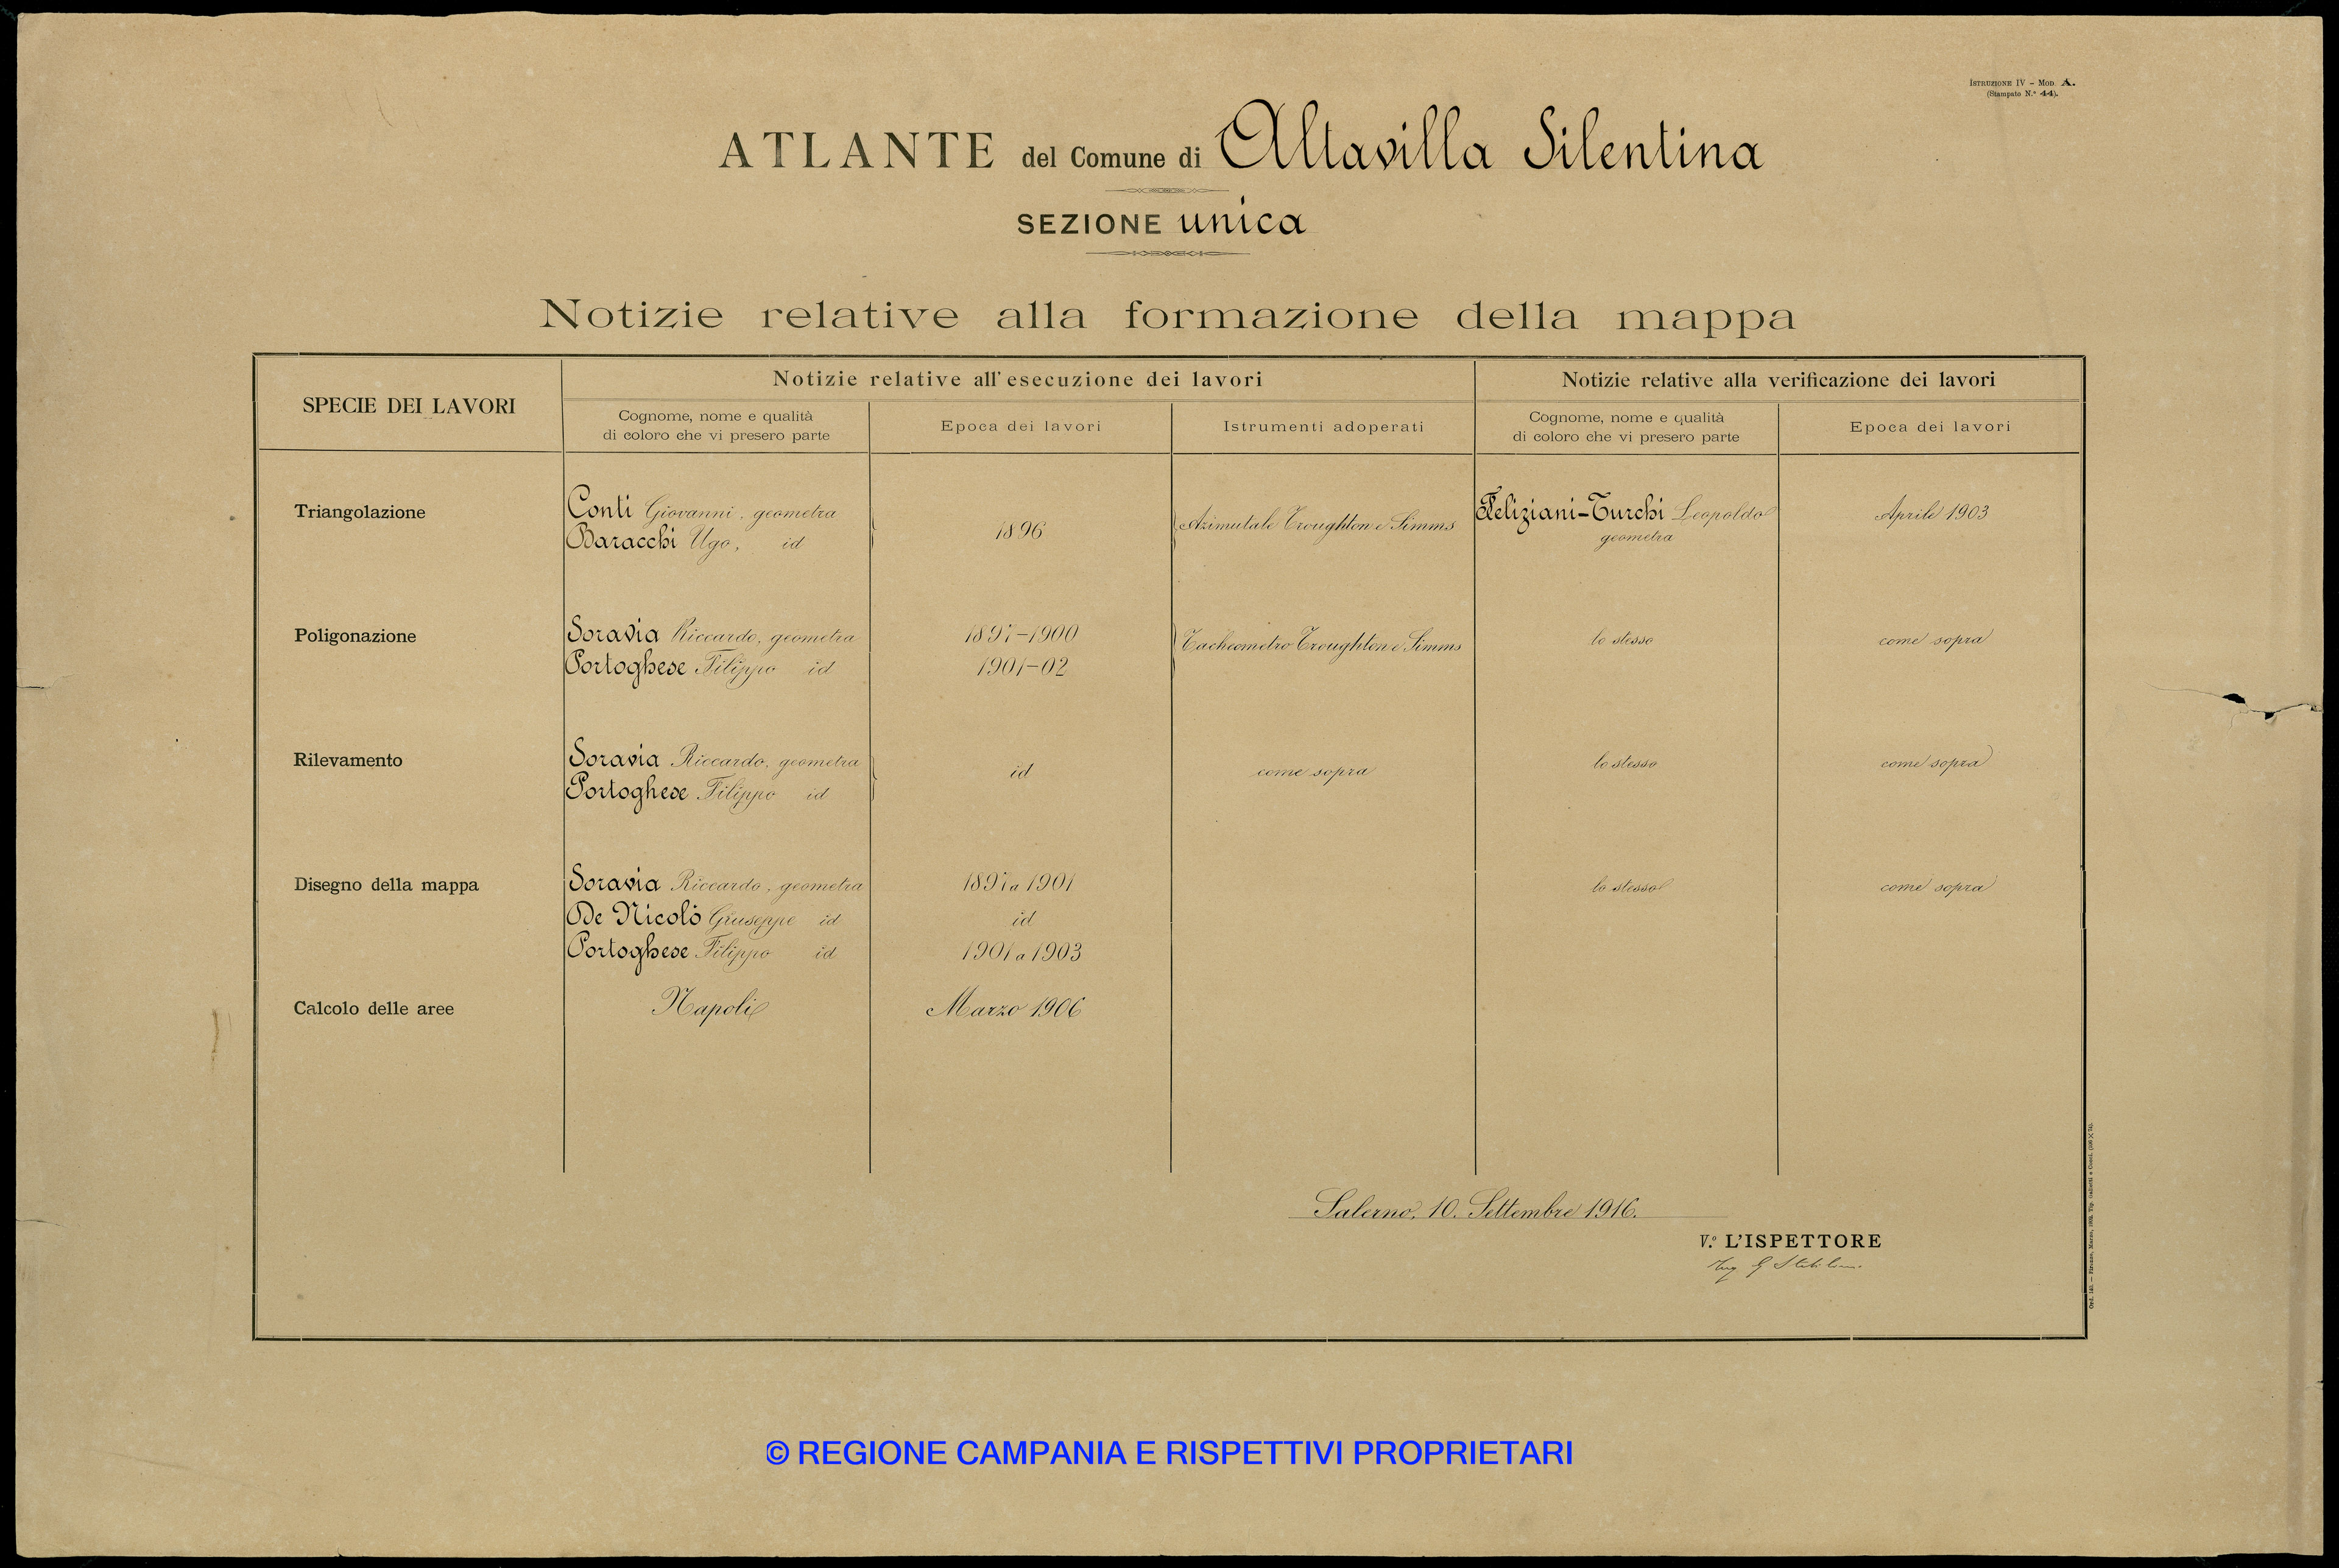 ISTRUZIONE IV – MOD. A.
(Stampato N.° 44).
ATLANTE del Comune di Altavilla Silentina
SEZIONE unica
Notizie relative alla formazione della mappa
SPECIE DEI LAVORI
Notizie relative all'esecuzione dei lavori
Notizie relative alla verificazione dei lavori
Cognome, nome e qualità
di coloro che vi presero parte
Epoca dei lavori
Istrumenti adoperati
Cognome, nome e qualità
di coloro che vi presero parte
Epoca dei lavori
Triangolazione
Conti Giovanni, geometra
Baracchi Ugo, id
1896
Azimutale Troughton e Simms
Feliziani-Turchi Leopoldo
geometra
Aprile 1903
Poligonazione
Soravia Riccardo, geometra
Portoghese Filippo id
1897-1900
1901-02
Tacheometro Troughton e Simms
lo stesso
come sopra
Rilevamento
Soravia Riccardo, geometra
Portoghese Filippo id
id
come sopra
lo stesso
come sopra
Disegno della mappa
Soravia Riccardo, geometra
De Nicolò Giuseppe id
Portoghese Filippo id
1897 a 1901
id
1901 a 1903
lo stesso
come sopra
Calcolo delle aree
Napoli
Marzo 1906
Salerno, 10. Settembre 1916.
V.° L'ISPETTORE
Ing. G
© REGIONE CAMPANIA E RISPETTIVI PROPRIETARI